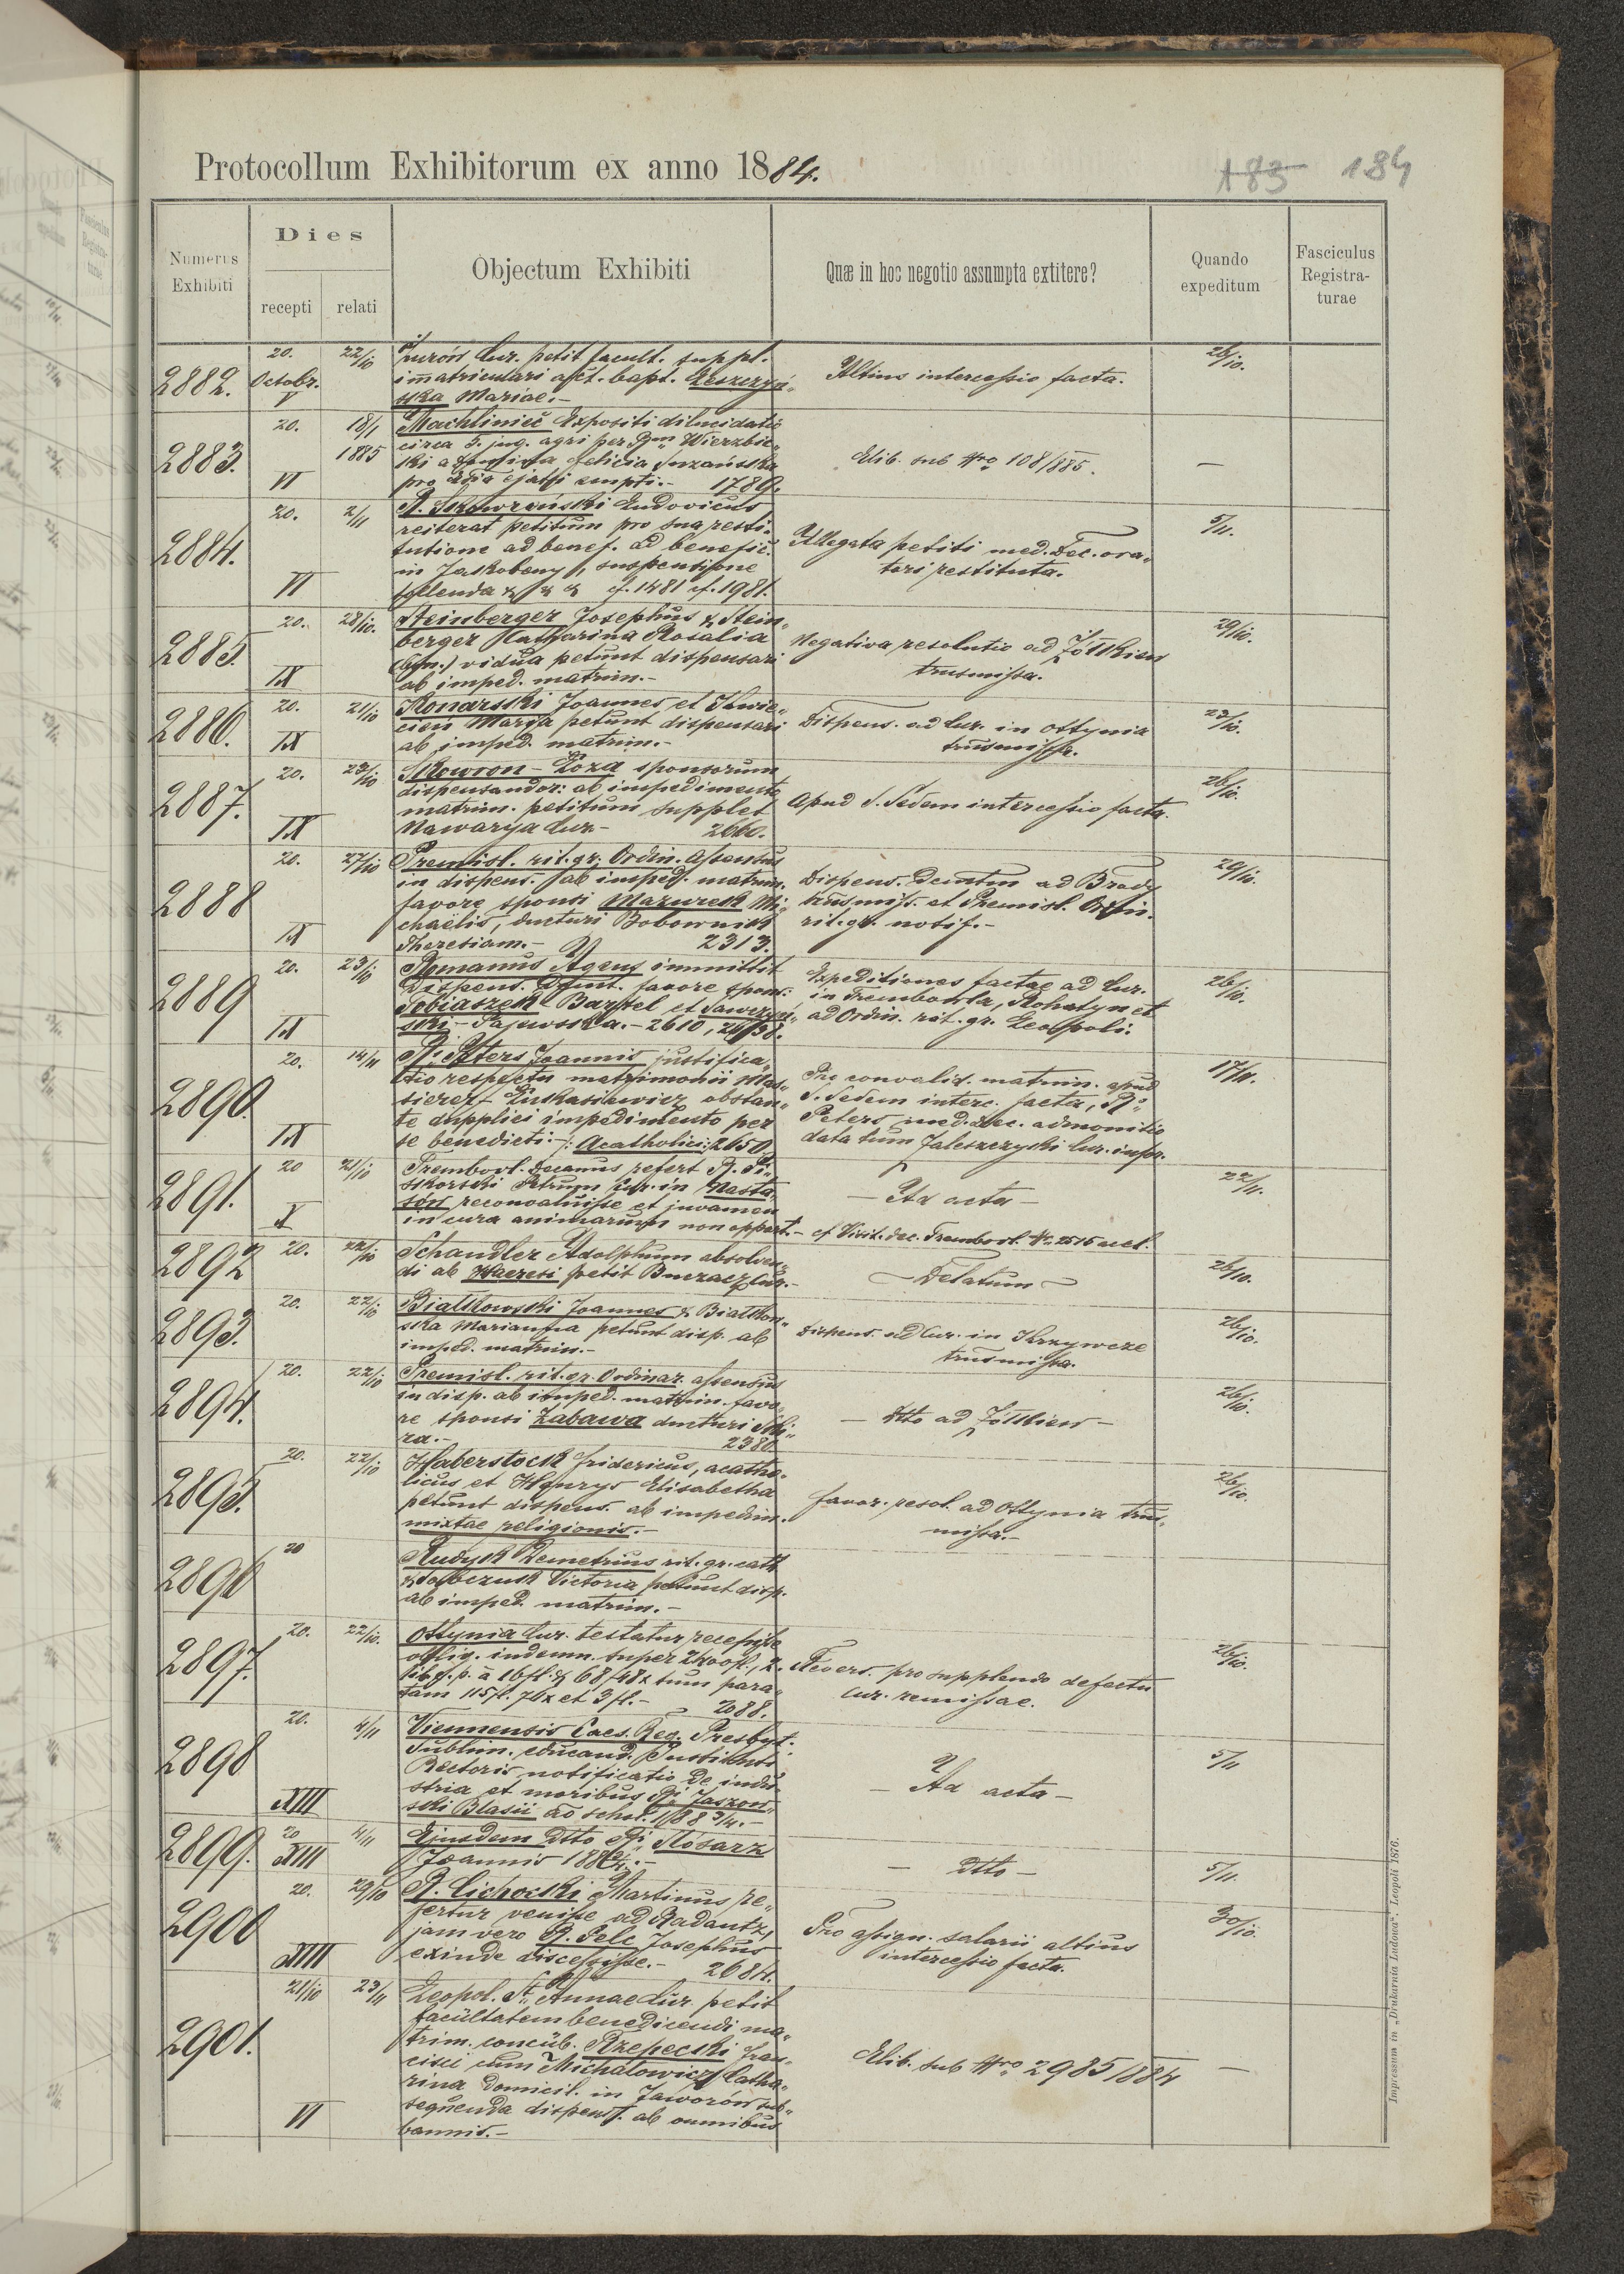 Protocollum Exhibitorum ex anno 1884.
183 184
Numerus Exhibiti
Dies
recepti
relati
Objectum Exhibiti
Quæ in hoc negotio assumpta extitere?
Quando expeditum
Fasciculus Registra-
turae
2882.
20.
Octobr.
V
22/10
Żurów Cur. petit facult. suppl.
immatriculari act. bapt. Leszczyń„
ska Mariae.-
Altius intercessio facta.
26/10.
2883.
20.
VI
18/1
1885
Machliniec Expositi dilucidatio
circa 5. jug. agri per Wierzbic„
ki a Felicia Suzańska
pro empti.- 1789.
Elib. sub Nro 108/885.
—
2884.
20.
VI
2/11
R. Skowroński Ludovicus
reiterat petitum pro sua resti„
tutione ad benef. ad benefic.
in Jakobeny, suspensione
tollenda & & & cf. 1481 cf. 1981.
Allegata petiti med. Dec. ora„
tori restituta.
5/11.
2885.
20.
IX
28/10.
Steinberger Josephus & Stein„
berger Catharina Rosalia
vidua petunt dispensari
ab imped. matrim.-
Negativa resolutio ad Żółkiew
trnsmissa.
29/10.
2886.
20.
IX
21/10
Konarski Joannes et Kwie„
cień Marya petunt dispensari
ab imped. matrim.-
Dispens. ad Cur. in Ottynia
trnsmissa.
23/10.
2887.
20.
IX
23/10
Skowron - Łoza sponsorum
dispensandor: ab impedimento
matrim. petitum supplet
Nawarya Cur.- 2660.
Apud S. Sedem intercessio facta.
26/10.
2888
20.
IX
27/10
Premisl. rit. gr. Ordin. Assensus
in dispens. ab imped. matrim.
favore sponsi Mazurek Mi„
chaëlis, ducturi Bobownik
Theresiam.- 2313.
Dispens. ad Brody
trnsmiss. et Premisl. Ordin.
rit. gr. notif.-
29/10.
2889
20.
IX
23/10
Romanus Agens immittit
Dispens. favore spons:
Tobiaszek - Barstel et Sawczyń„
ski - Pajewska.- 2610,
Expeditiones factae ad Cur.
in Trembowla, Rohatyn et
ad Ordin. rit. gr. Leopoli.
26/10.
2890.
20.
IX
14/11
R. Peters Joannis justifica„
tio respectu matrimonii Mas„
sierer - Łukasiewicz obstan„
te duplici impedimento per
se benedicti.- /: Acatholici :/ 2650
Pro convalid. matrim. apud
S. Sedem interc. facta, R.
Peters med. Dec. admonitio
data tum Zaleszczyki Cur. infor.
17/11.
2891.
20
X
21/10
Trembovl. Decanus refert R. Pi„
skorski Petrum Cur. in Nasta„
sów reconvaluisse et juvamen
in cura animarum non opport.- cf. Visit. Dec. Trembovl. Nr. 2515 accl.
— Ad acta —
22/11.
2892
20.
22/10
Schandler Adolphum absolven„
di ab Haeresi petit Buczacz Cur.-
— Delatum —
26/10.
2893.
20.
22/10
Białkowski Joannes & Białkow„
ska Marianna petunt disp. ab
imped. matrim.-
Dispens. ad Cur. in Krzywcze
trnsmissa.
26/10.
2894.
20.
22/10
Premisl. rit. gr. Ordinar. assensus
in disp. ab imped. matrim. favo„
re sponsi Zabawa ducturi
ra.- 2380
— dtto ad Żółkiew —
26/10.
2895.
20.
22/10
Haberstock Fridericus, acatho„
licus et Henrys Elisabetha
petunt dispens. ab impedim.
mixtae religionis.-
Favor. resol. ad Ottynia trns„
missa.-
26/10.
2896
20
Rudyk Demetrius rit. gr. cath
& Victoria petunt disp.
ab imped. matrim.-
2897.
20.
22/10.
Ottynia Cur. testatur recepisse
oblig. indemn. super
à 16 fl. & 68/48x tum para„
tam 115 fl. 76x et 3 fl.- 2088.
Revers. pro supplendo defectu
Cur. remissae.
26/10.
2898
20.
XIII
4/11
Viennensis Caes. Reg. Presbyt.
sublim. educand. Instituti
Rectoris notificatio de indu„
stria et moribus R. Jaszow„
ski Blasii ao schol. 1883/4.-
— Ad acta —
5/11
2899.
20
XIII
4/11
Ejusdem dtto R. Kosarz
Joannis
— dtto —
5/11.
2900
20.
XIII
29/10
R. Cichocki Martinus re„
fertur venisse ad Radautz,
jam vero R. Pelc Josephus
exinde discessisse.- 2684.
Pro assign. salarii altius
intercessio facta.
30/10.
2901.
21/10
VI
23/11
Leopol. St. Annae Cur. petit
facultatem benedicendi ma„
trim. concub. Rzepecki Fran„
cisci cum Michałowicz Catha„
rina domicil. in Jaworów sub„
sequenda dispens. ab omnibus
bannis.-
Elib. sub Nro 2985/884
—
Impressum in „Drukarnia Ludowa“. Leopoli 1876.